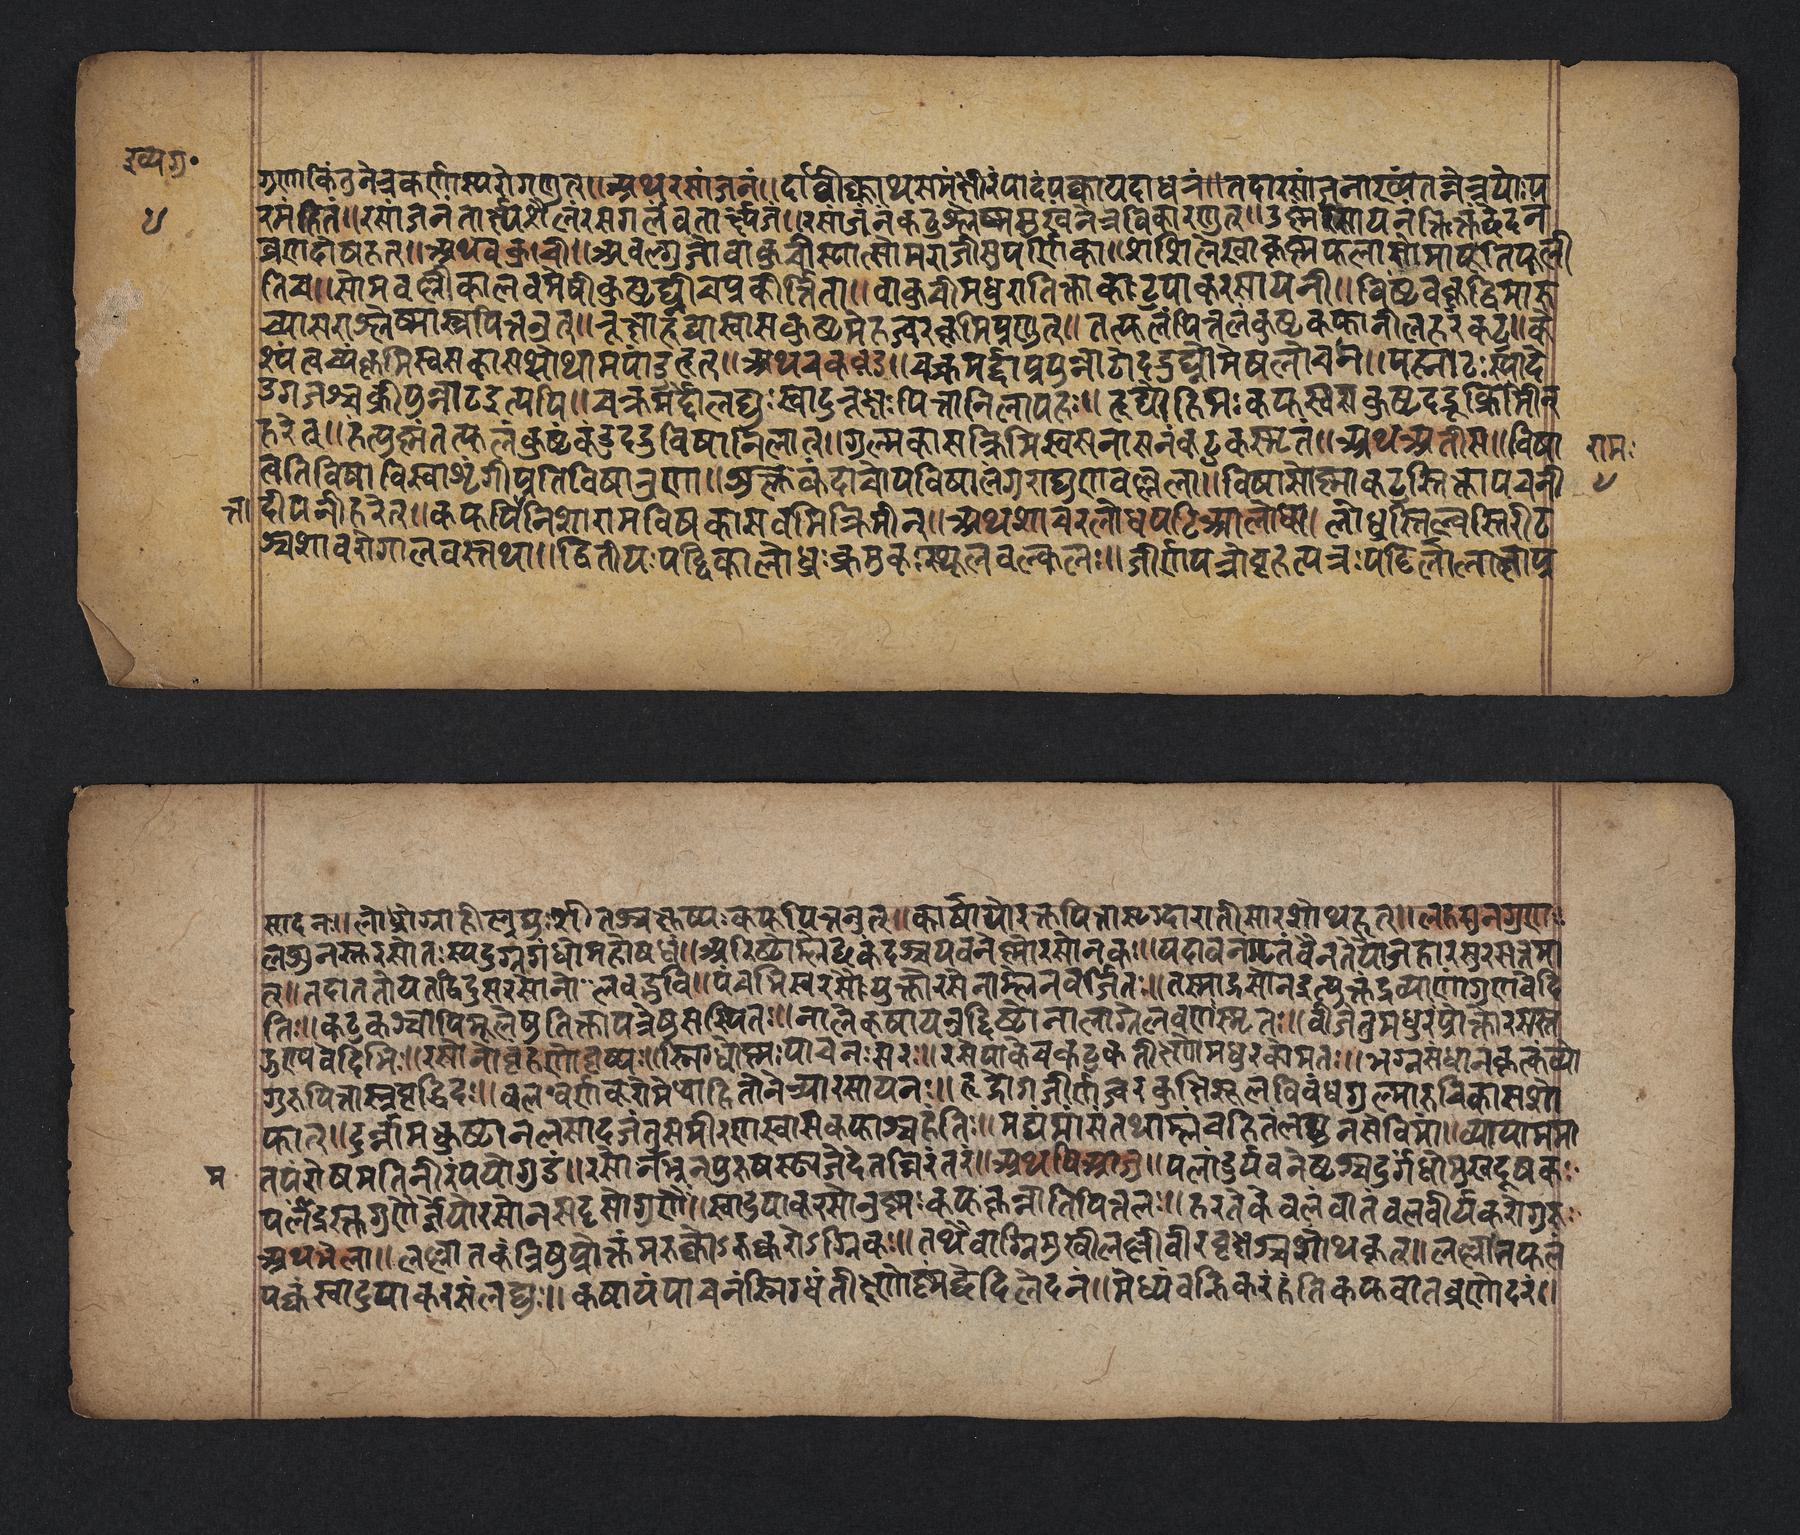 द्रव्यगु॰
५
गुणा किंतु नेत्रकर्णास्यरोगनुत्॥अथरसांजनं॥दार्वीक्वाथसमंक्षीरंपादंपक्वायदाघनं॥तदारसांजनाख्यंतन्नेत्रयोःप
रमंहितं॥रसांजनंतार्क्ष्यशैलंरसगर्भंचतार्क्ष्यजं॥रसांजनंकटुश्लेष्ममुखनेत्रविकारणुत्॥उष्णंरसायनंतिक्तंछेदनं
व्रणदोषहृत्॥अथवकुची॥अवल्गुजोवाकुचीस्यात्सोमराजीसुपर्णिका॥शशिलेखाकृष्णफलासोमापूतिफली
तिच॥सोमवल्लीकालमेषीकुष्टघ्नीचप्रकीर्त्तिता॥वाकुचीमधुरातिक्ताकटुपाकरसायनी॥विष्टंवहृद्धिमारु
च्यासराश्लेष्मास्रपित्तनुत्॥रूक्षाहृद्याश्वासकुष्टमेहज्वरकृमिप्रणुत्॥तत्फलंपित्तलंकुष्टकफानीलहरंकटु॥के
श्यंत्वच्यंकृमिश्वासकासशोथामपांडुहृत्॥अथचकवड॥चक्रमर्द्दःप्रपुन्नाटोदद्रुघ्नोमेषलोचनः॥पद्माटःस्यादे
डगजश्चक्रीपुन्नाटइत्यपि॥चक्रमर्दोलघुःस्वादुरूक्षःपित्तानिलापहः॥हृद्योहिमःकफश्वासकुष्टदद्रूक्रिमीन्
हरेत्॥हंत्युष्णंतत्फलंकुष्टंकंडुदद्रुविषानिलान्॥गुल्मकासक्रिमिश्वासनासनंकटुकस्मृतं॥अथअतीस॥विषा
त्वतिविषाविश्वाशृंगीप्रतिविषारुणा॥शुक्लकंदाचोपविषाभंगुराघुणवल्लभा॥विषासोष्णाकटुस्तिक्तापाचनी
दीपनीहरेत्॥कफपित्तातिशारामविषकासवमिक्रिमीन्॥अथशावरलोधपटिआलोध॥लोध्रस्तिल्वस्तिरीट
श्चशावरोगालवस्तथा॥द्वितीयःपट्टिकालोध्रःक्रमुकःस्थूलवल्कलः॥जीर्णपत्रोबृहत्पत्रःपट्टिर्लाक्षाप्र
त्ता
रामः
५
सादनः॥लोध्रोग्राहीलघुःशीतश्चक्षुष्यःकफपित्तनुत्॥कषायोरक्तपित्तासृग्दरातीसारशोथहृत्॥लहसुनगुणाः
लशुनस्तुरसोनःस्यादुग्रगंधोमहौषधं॥अरिष्टोम्लेच्छकंदश्चयवनेष्टोरसोनकः॥यदावनष्टतंवैनतेयोजहारसुरसत्तमा
त्॥तदाततोपतद्विंदुःसरसोनोभवद्भुवि॥पंचभिश्चरसैर्युक्तोरसेनाम्लेनवर्जितः॥तस्माद्रसोनइत्युक्तोद्रव्याणांगुणवेदि
भिः॥कटुकश्चापिमूलेषुतिक्तःपत्रेषुसंस्थितः॥नालेकषायउद्दिष्टोनालाग्रेलवणःस्मृतः॥वीजेतुमधुरःप्रोक्तोरसस्त
द्गुणवेदिभिः॥रसोनोबृंहणोवृष्यःस्निग्धोष्णःपाचनःसरः॥रसेपाकेचकटुकतीक्ष्णोमधुरकोमतः॥भग्नसंधानकृत्कंठ्यो
गुरुपित्तास्रवृद्धिदः॥बलवर्णकरोमेधाहितोनेत्र्योरसायनः॥हृद्रोगजीर्णज्वरकुक्षिशूलविवंधगुल्मारुचिकासशो
फान्॥दुर्न्नामकुष्टानलसादजंतुसमीरणश्वासकफांश्चहंति॥मद्यंमांसंतथाम्लंचहितंलशुनसेविनां॥व्यायाममा
तपंरोषमतिनीरंपयोगुडं॥रसोनमश्नन्पुरुषस्त्यजेदेतन्निरंतरं॥अथपिआजु॥पलांडुर्यवनेष्टश्चदुर्गंधोमुखदूषकः
पलांडुस्तुगुणैर्ज्ञेयोरसोनसदृशोगुणैः॥स्वादुपाकरसोनुष्णःकफकृन्नातिपित्तलः॥हरतेकेवलंवातंबलवीर्यकरोगुरुः
अथभेला॥भल्लातकंत्रिषुप्रोक्तंमरुष्कोऽरुष्करोऽग्निकः॥तथैवाग्निमुखीभल्लीवीरवृक्षश्चशोथकृत्॥भल्लातफलं
पक्वंस्वादुपाकरसंलघुः॥कषायंपाचनंस्निग्धंतीक्ष्णोष्णंछेदिभेदनं॥मेध्यंवह्निकरंहंतिकफवातव्रणोदरं॥
म